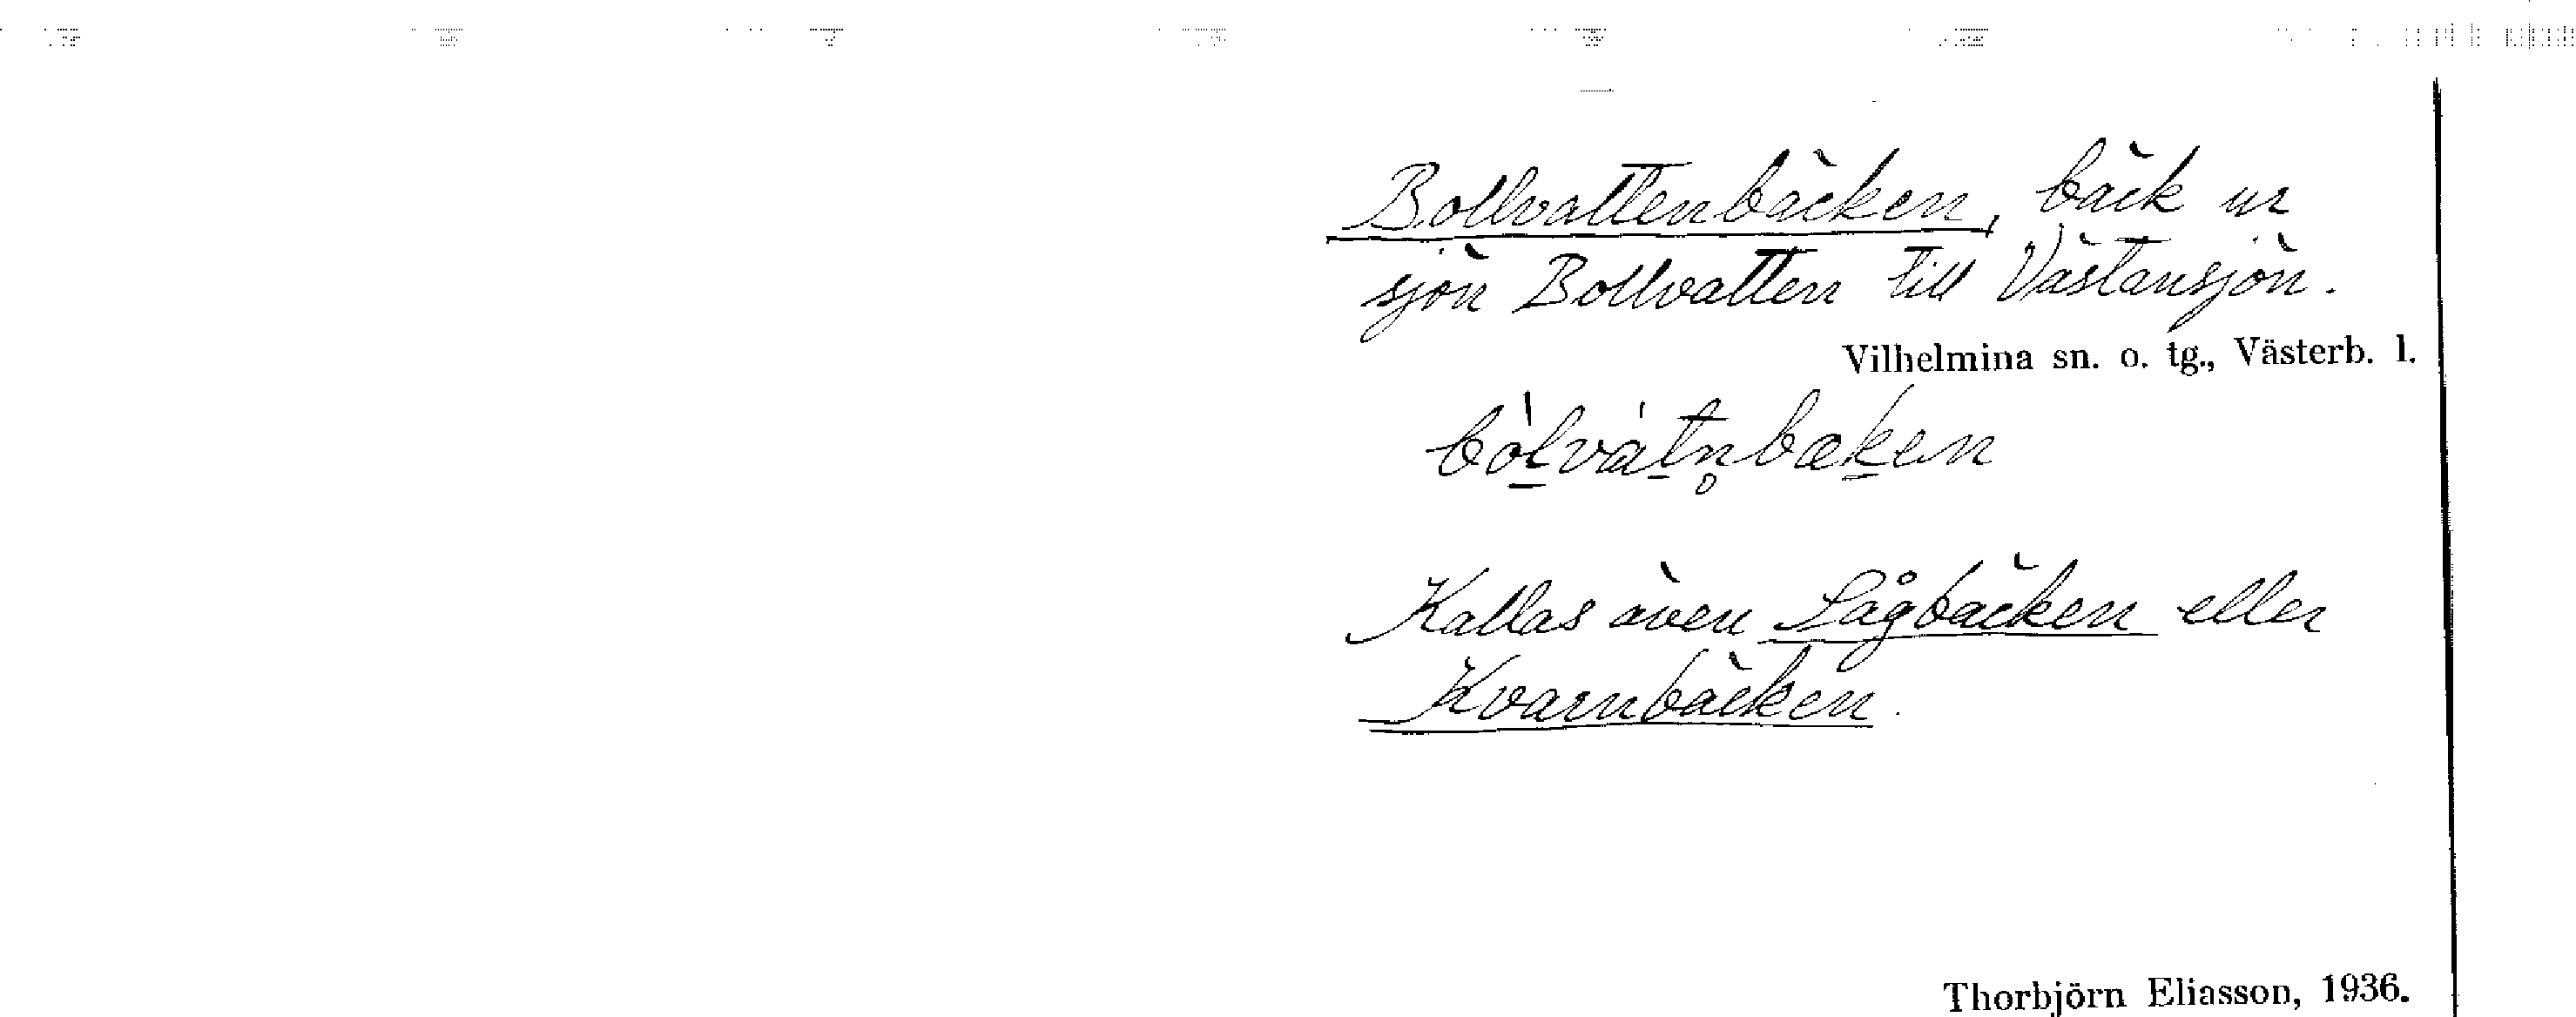 Bollvattenbäcken, bäck ur
sjön Bollvatten till Västansjön.
Vilhelmina sn. o. tg., Västerb. l.
bòl̠vàt̠n̥bæk̠en
Kallas även Sågbäcken eller
Kvarnbäcken.
Thorbjörn Eliasson, 1936.